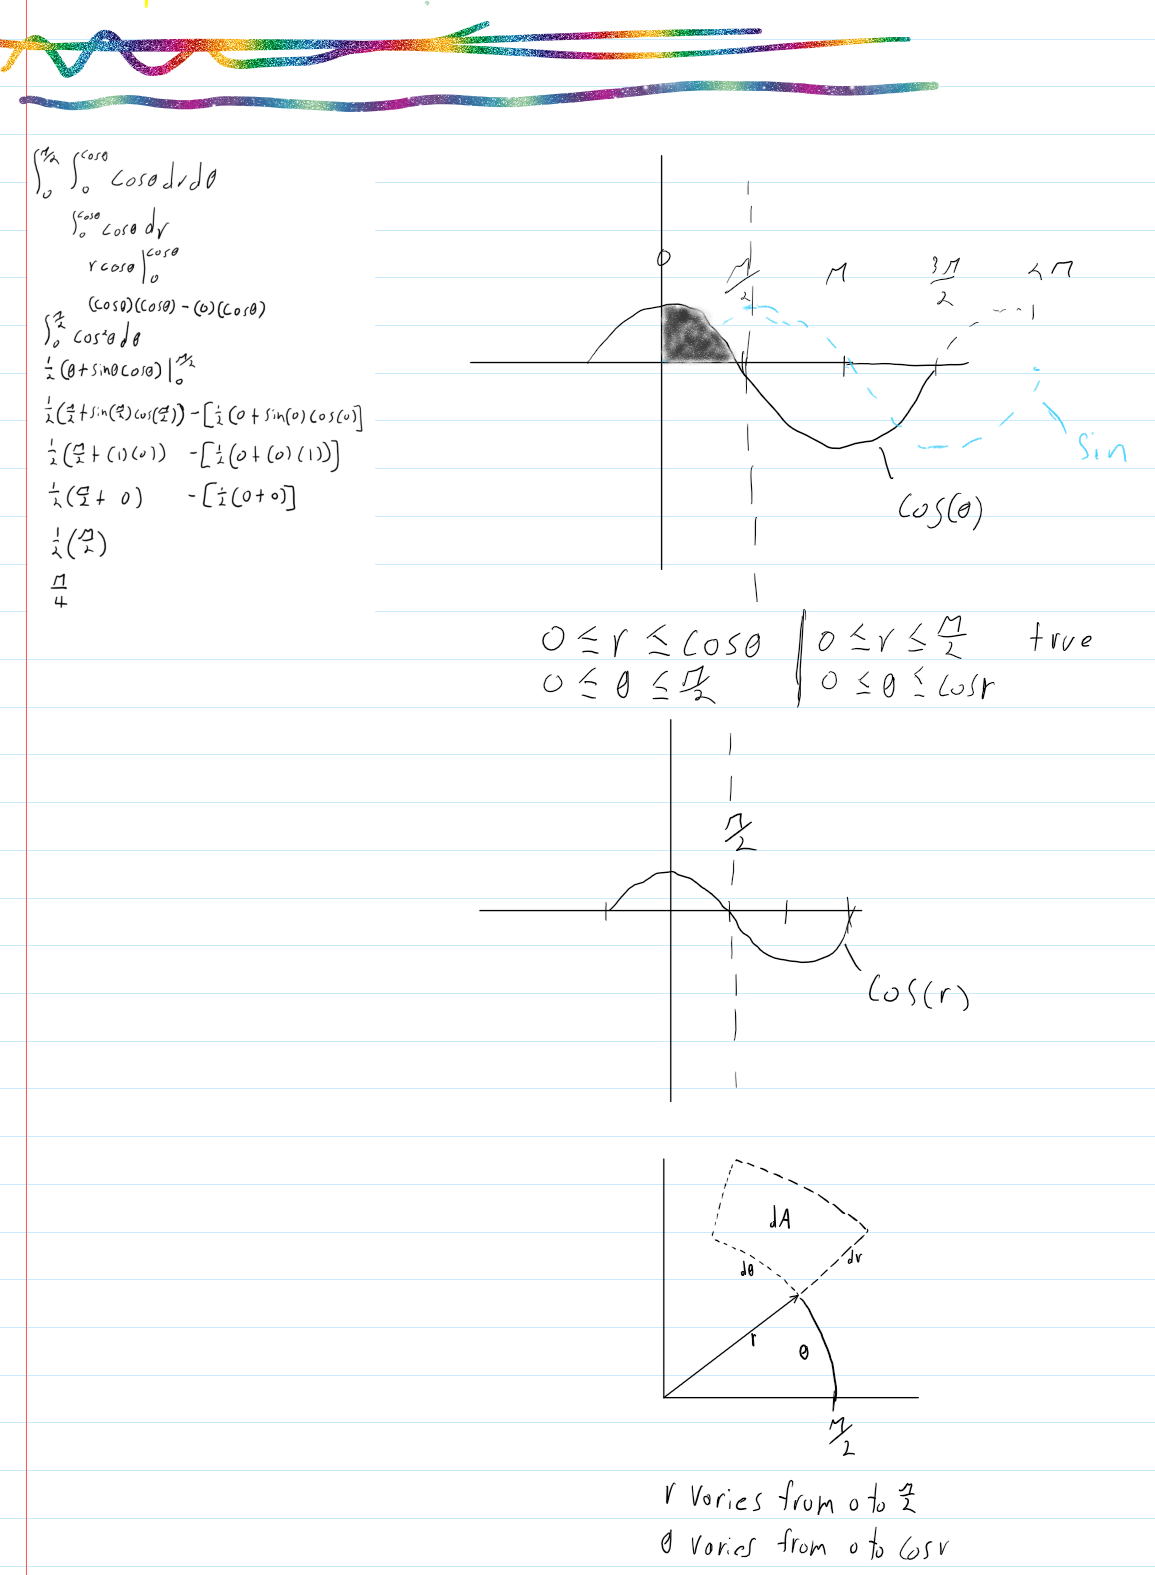 ∫₀^{π/2} ∫₀^{cosθ} cosθ dr dθ
∫₀^{cosθ} cosθ dr
r cosθ |₀^{cosθ}
(cosθ)(cosθ) - (0)(cosθ)
∫₀^{π/2} cos²θ dθ
½(θ + sinθcosθ) |₀^{π/2}
½(π/2 + sin(π/2) cos(π/2)) - [½(0 + sin(0) cos(0)]
½(π/2 + (1)(0)) - [½(0 + (0)(1))]
½(π/2 + 0) - [½(0+0)]
½(π/2)
π/4
0 π/2 π 3π/2 2π
sin
cos(θ)
0 ≤ r ≤ cosθ | 0 ≤ r ≤ π/2 true
0 ≤ θ ≤ π/2 | 0 ≤ θ ≤ cosr
π/2
cos(r)
dA
dθ dr
r θ
π/2
r varies from 0 to π/2
θ varies from 0 to cosr